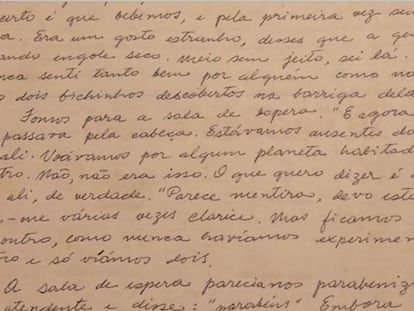 certo é que bebemos, e pela primeira vez sen
a. Era um gosto estranho, desses que a ge
ando engole seco. Meio sem jeito, sei lá.
nca senti tanto bem por alguém como na
o dois bichinhos descobertos na barriga dela
Fomos para a sala de espera. "E agora
passava pela cabeça. Estávamos ausentes da
ali. Voávamos por algum planeta habitad
tro. Não, não era isso. O que quero dizer é
ali, de verdade. "Parece mentira, devo esta
-me várias vezes Clarice. Mas ficamos
contro, como nunca havíamos experimen
tro e só víamos dois.
A sala de espera parecia nos parabeniz
atendente e disse: "parabéns" Embora